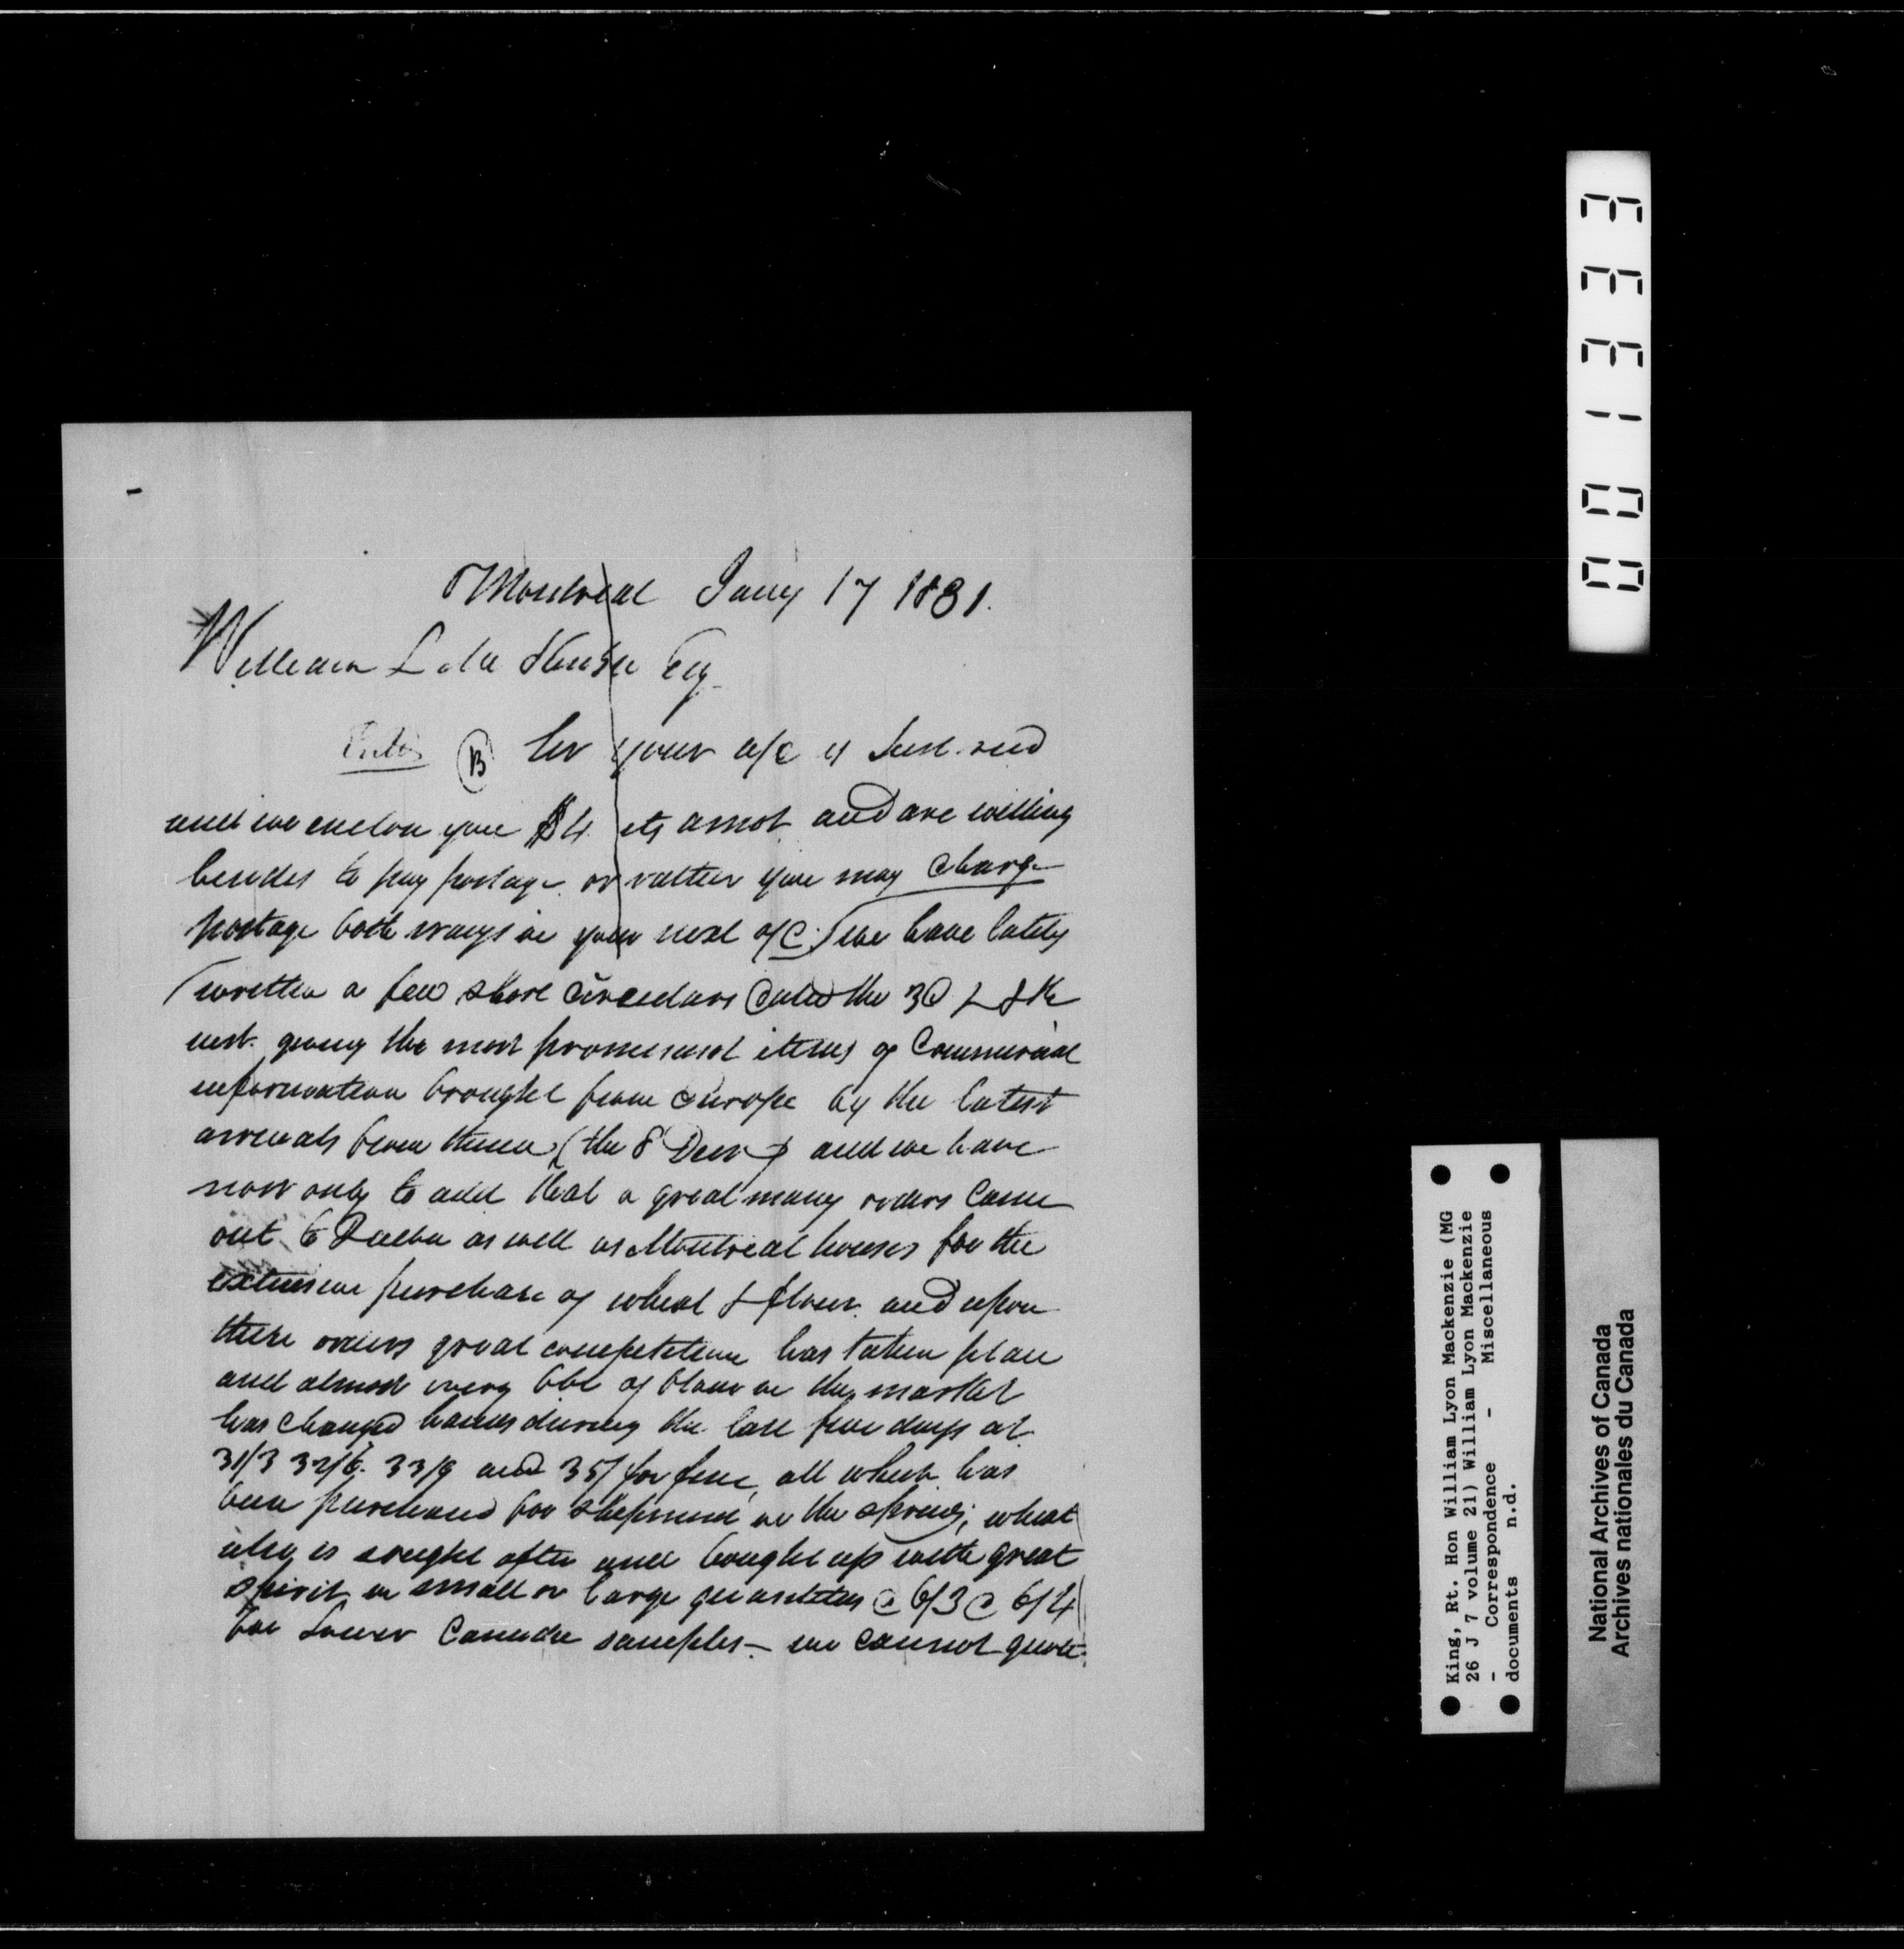 Montreal Jany 17 1831.
William L McKenzie Esq
(B) Sir your a/c is just recd
and we enclose you $4 its amot and are willing
besides to pay postage or rather you may charge
postage both ways in your next a/c. we have lately
written a few short circulars dated the 3d &
inst. giving the most prominent items of Commercial
information brought from Europe by the latest
arrivals from thence (the 8 Decr) and we have
now only to add that a great many orders came
out to Quebec as well as Montreal houses for the
extensive purchase of wheat & flour and upon
these orders great competition has taken place
and almost every bbl of flour in the market
has changed hands during the last few days at
31/3 32/6. 33/9 and 35/ for fine, all which has
been purchased for shipment in the spring; wheat
also is sought after and bought up with great
spirit in small or large quantities @ 6/3 @ 6/4
for Lower Canada samples - we cannot quote
0013 33
King, Rt. Hon William Lyon Mackenzie (MG
26 J 7 volume 21) William Lyon Mackenzie
- Correspondence - Miscellaneous
documents n.d.
National Archives of Canada
Archives nationales du Canada